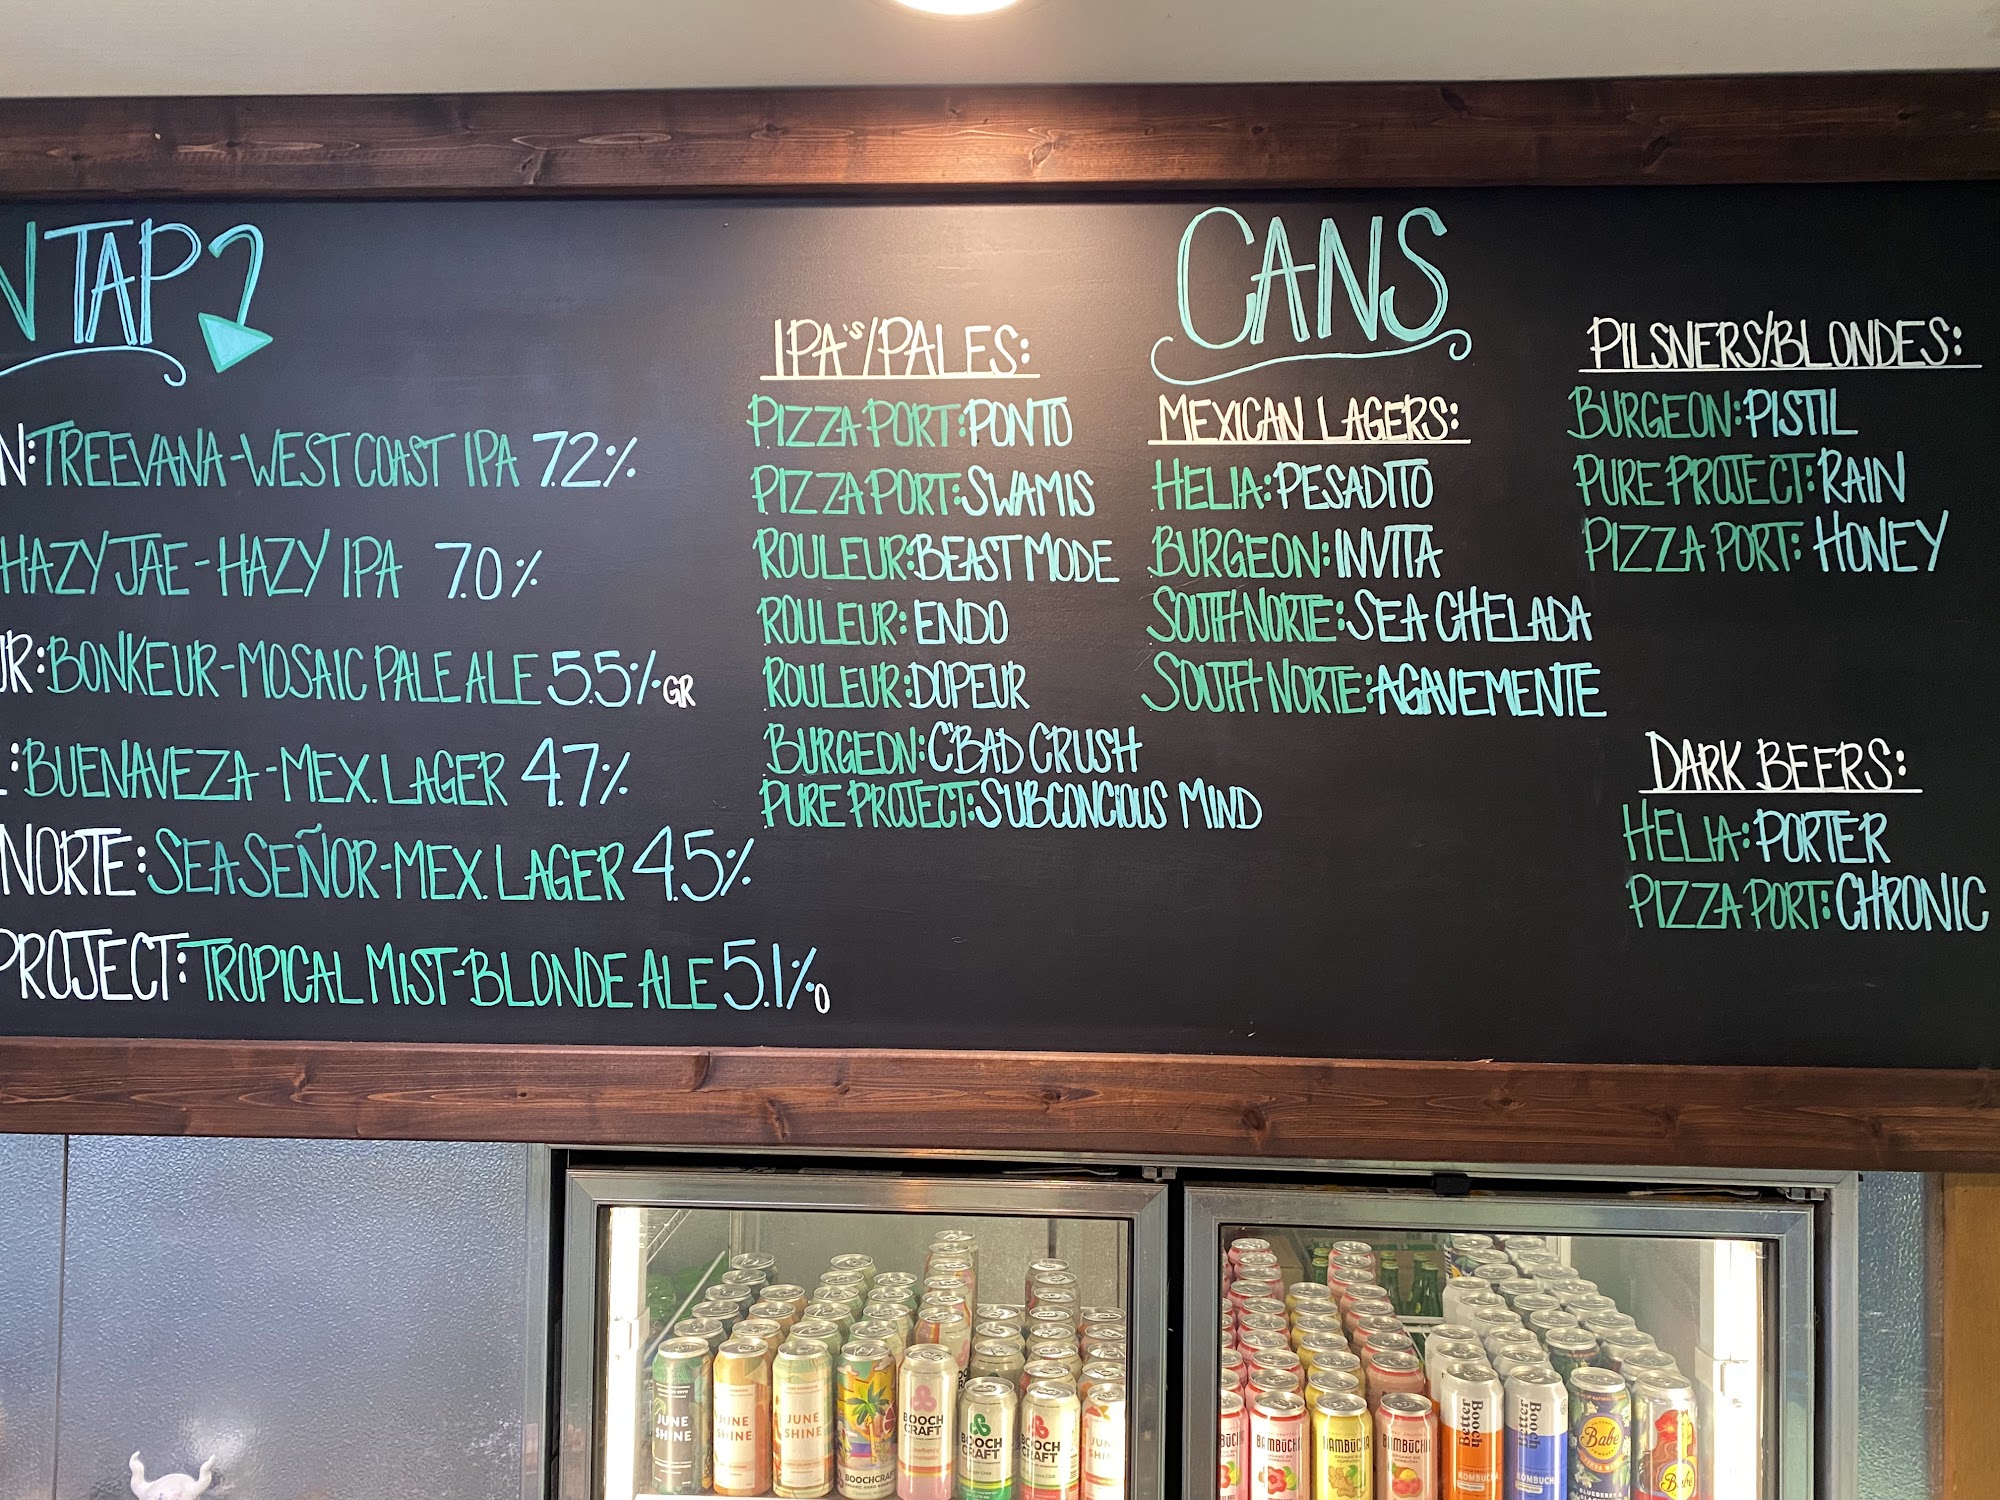 N TAP
N: TREEVANA - WEST COAST IPA 7.2%
HAZY JAE - HAZY IPA 7.0%
UR: BONKEUR - MOSAIC PALE ALE 5.5% GR
: BUENAVEZA - MEX. LAGER 4.7%
NORTE: SEA SEÑOR - MEX. LAGER 4.5%
PROJECT: TROPICAL MIST - BLONDE ALE 5.1%
CANS
IPA's/PALES:
PIZZA PORT: PONTO
PIZZA PORT: SWAMIS
ROULEUR: BEAST MODE
ROULEUR: ENDO
ROULEUR: DOPEUR
BURGEON: C'BAD CRUSH
PURE PROJECT: SUBCONCIOUS MIND
MEXICAN LAGERS:
HELIA: PESADITO
BURGEON: INVITA
SOUTH NORTE: SEA CHELADA
SOUTH NORTE: AGAVEMENTE
PILSNERS/BLONDES:
BURGEON: PISTIL
PURE PROJECT: RAIN
PIZZA PORT: HONEY
DARK BEERS:
HELIA: PORTER
PIZZA PORT: CHRONIC
JUNE
SHINE
JUNE
SHINE
JUNE
SHINE
BOOCHCRAFT
BOOCH
CRAFT
BOOCH
CRAFT
BOOCH
CRAFT
BAMBUCHA
Booch
Better
KOMBUCHA
Booch
Better
KOMBUCHA
Babe
Babe